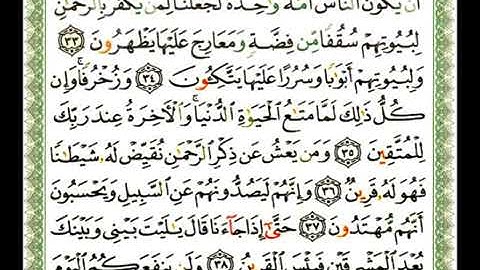 أَن يَكُونَ ٱلنَّاسُ أُمَّةً وَٰحِدَةً لَّجَعَلْنَا لِمَن يَكْفُرُ بِٱلرَّحْمَٰنِ
لِبُيُوتِهِمْ سُقُفًا مِّن فِضَّةٍ وَمَعَارِجَ عَلَيْهَا يَظْهَرُونَ ٣٣
وَلِبُيُوتِهِمْ أَبْوَٰبًا وَسُرُرًا عَلَيْهَا يَتَّكِـُٔونَ ٣٤ وَزُخْرُفًا وَإِن
كُلُّ ذَٰلِكَ لَمَّا مَتَٰعُ ٱلْحَيَوٰةِ ٱلدُّنْيَا وَٱلْـَٔاخِرَةُ عِندَ رَبِّكَ
لِلْمُتَّقِينَ ٣٥ وَمَن يَعْشُ عَن ذِكْرِ ٱلرَّحْمَٰنِ نُقَيِّضْ لَهُۥ شَيْطَٰنًا
فَهُوَ لَهُۥ قَرِينٌ ٣٦ وَإِنَّهُمْ لَيَصُدُّونَهُمْ عَنِ ٱلسَّبِيلِ وَيَحْسَبُونَ
أَنَّهُم مُّهْتَدُونَ ٣٧ حَتَّىٰٓ إِذَا جَآءَنَا قَالَ يَٰلَيْتَ بَيْنِى وَبَيْنَكَ
بُعْدَ ٱلْمَشْرِقَيْنِ فَبِئْسَ ٱلْقَرِينُ ٣٨ وَلَن يَنفَعَكُمُ ٱلْيَوْمَ